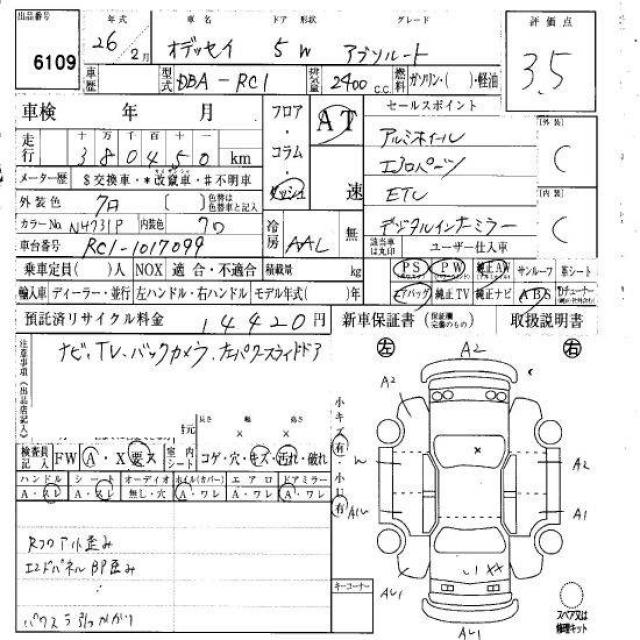 出品番号 年式 車名 ドア 形状 グレード 評価点
6109 26年 2月 オデッセイ 5 W アブソルート 3.5
車歴 型式 DBA-RC1 排気量 2400 c.c. 燃料 ガソリン・( )・軽油
車検 年 月 フロア・コラム・ダッシュ AT 速 セールスポイント 【外装】 C
走行 十 万 千 百 十 一 アルミホイール
3 8 0 4 5 0 km エアロパーツ
メーター歴 $交換車・*改竄車・#不明車 ETC 【内装】 C
外装色 クロ 〔 〕 色替は色替車と記入 デジタルインナーミラー
カラーNo. N4731P 内装色 クロ 冷房 AAC 無 該当車は丸印 ユーザー仕入車
車台番号 RC1-1017099
乗車定員( )人 NOX 適合・不適合 積載量 kg PS PW 純正AW サンルーフ 革シート
輸入車 ディーラー・並行 左ハンドル・右ハンドル モデル年式( )年 エアバッグ 純正TV 純正ナビ ABS
預託済リサイクル料金 14420円 新車保証書 (保証欄完備のもの) 取扱説明書
注意事項《出品店記入》
ナビ、TV、バックカメラ、
左 A2 右
長さ 幅 高さ
× ×
小キズ 有・小凹 有
検査員記入 FW A・X要ス 室内シート コゲ・穴・キズ・汚れ・破れ
ハンドル シート オーディオ ホイル(カバー) エアロ ドアミラー
A・スレ A・スレ 無し・穴 A・ワレ A・ワレ A・ワレ
A2
A2
A1
AU1
AU1
キーコーナー
スペア又は修理キット